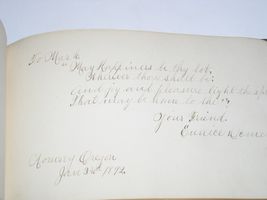 To Mark
"May Happiness be thy lot,
Wherever thou shalt be:
And joy and pleasure light the
That may be home to the"
Your Friend.
Eunice
Oregon
Jan 1892.